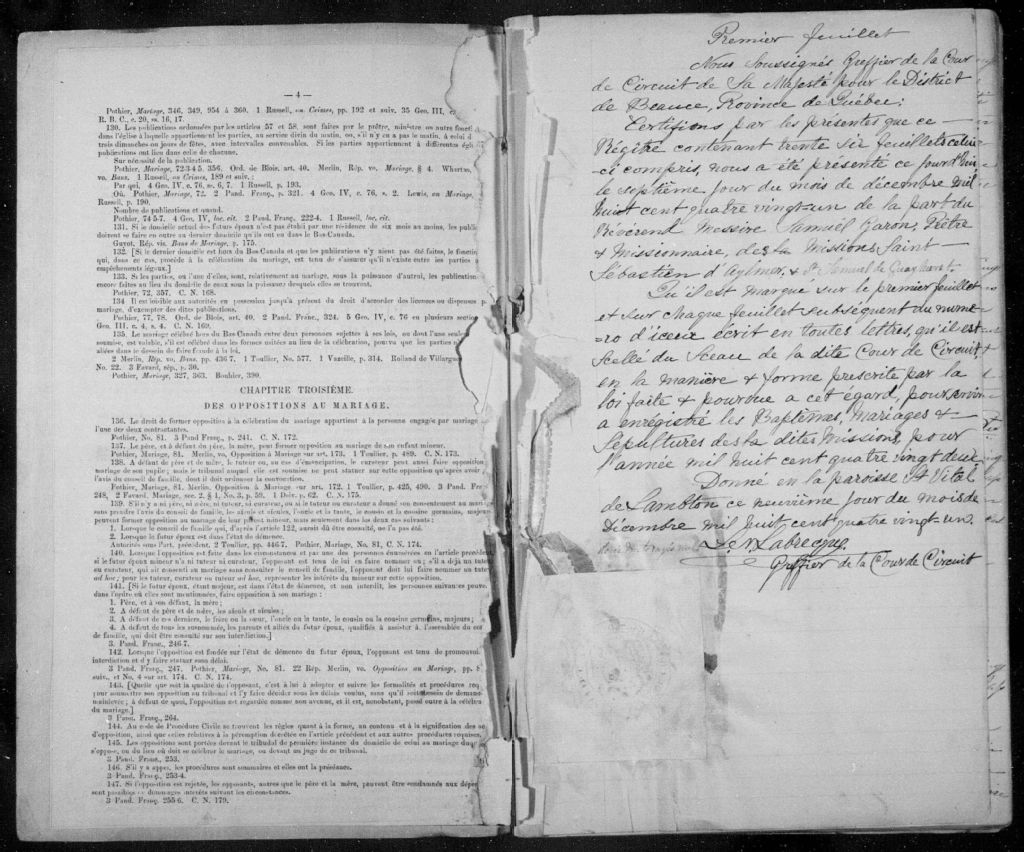 — 4 —
Pothier, Mariage, 346, 349, 954 à 360. 1 Russell, on Crimes, pp. 192 et suiv. 35 Geo. III,
R. B. C., c. 20, ss. 16, 17.
130. Les publications ordonnées par les articles 57 et 58, sont faites par le prêtre, ministre ou autre
dans l'église à laquelle appartiennent les parties, au service divin du matin, ou, s'il n'y en a pas le matin, à celui d
trois dimanches ou jours de fêtes, avec intervalles convenables. Si les parties appartiennent à différentes
publications ont lieu dans celle de chacune.
Sur nécessité de la publication.
Pothier, Mariage, 72-3-4-5, 356. Ord. de Blois, art. 40. Merlin, Rép. vo. Mariage, § 4.
vo. Bans, 1 Russel, on Crimes, 189 et suiv.;
Par qui, 4 Geo. IV, c. 76, ss. 6, 7. 1 Russell, p. 193.
Où, Pothier, Mariage, 72. 2 Pand. Franç., p. 321. 4 Geo. IV, c. 76, s. 2. Lewis, on Mariage,
Russell, p. 190.
Nombre de publications et quand.
Pothier, 74-5-7. 4 Geo. IV, loc. cit. 2 Pand. Franç., 222-4. 1 Russell, loc. cit.
131. Si le domicile actuel des futurs époux n'est pas établi par une résidence de six mois au moins, les
doivent se faire en outre au dernier domicile qu'ils ont eu dans le Bas-Canada.
Guyot, Rép. vis. Bans de Mariage, p. 175.
132. [Si le dernier domicile est hors du Bas-Canada et que les publications n'y aient pas été faites, le
qui, dans ce cas, procède à la célébration du mariage, est tenu de s'assurer qu'il n'existe entre les parties
empêchements légaux.]
133. Si les parties, ou l'une d'elles, sont, relativement au mariage, sous la puissance d'autrui, les
encore faites au lieu du domicile de ceux sous la puissance desquels elles se trouvent.
Pothier, 72, 357. C. N. 168.
134. Il est loisible aux autorités en possession jusqu'à présent du droit d'accorder des licences ou dispenses
mariage, d'exempter des dites publications.
Pothier, 77, 78. Ord. de Blois, art. 40. 2 Pand. Franç., 324. 5 Geo. IV, c. 76 en plusieurs
Geo. III, c. 4, s. 4. C. N. 169.
135. Le mariage célébré hors du Bas-Canada entre deux personnes sujettes à ses lois, ou dont l'une
soumise, est valable, s'il est célébré dans les formes usitées au lieu de la célébration, pourvu que les parties
allées dans le dessein de faire fraude à la loi.
2 Merlin, Rép. vo. Bans, pp. 436-7. 1 Toullier, No. 577. 1 Vazeille, p. 314. Rolland de
No. 22. 3 Favard, rép., p. 30.
Pothier, Mariage, 327, 363. Bouhier, 390.
CHAPITRE TROISIÈME.
DES OPPOSITIONS AU MARIAGE.
136. Le droit de former opposition à la célébration du mariage appartient à la personne engagée par mariage
l'une des deux contractantes.
Pothier, No. 81. 3 Pand Franç., p. 241. C. N. 172.
137. Le père, et à défaut du père, la mère, peut former opposition au mariage de son enfant mineur.
Pothier, Mariage, 81. Merlin, vo. Opposition à Mariage sur art. 173. 1 Toullier, p. 489. C. N. 173.
138. A défaut de père et de mère, le tuteur ou, au cas d'émancipation, le curateur peut aussi faire opposition
mariage de son pupille; mais le tribunal auquel elle est soumise ne peut statuer sur cette opposition qu'après avoir
l'avis du conseil de famille, dont il doit ordonner la convocation.
Pothier, Mariage, 81. Merlin, Opposition à Mariage sur art. 172. 1 Toullier, p. 425, 490. 3 Pand.
248, 2 Favard, Mariage, sec. 2, § 1, No. 3, p. 59. 1 Delv. p. 62. C. N. 175.
139. S'il n'y a ni père, ni mère, ni tuteur, ni curateur, ou si le tuteur ou curateur a donné son consentement au
sans prendre l'avis du conseil de famille, les aïeuls et aïeules, l'oncle et la tante, le cousin et la cousine germains,
peuvent former opposition au mariage de leur parent mineur, mais seulement dans les deux cas suivants:
1. Lorsque le conseil de famille qui, d'après l'article 122, aurait dû être consulté, ne l'a pas été.
2. Lorsque le futur époux est dans l'état de démence.
Autorités sous l'art. précédent, 2 Toullier, pp. 446-7. Pothier, Mariage, No. 81, C. N. 174.
140. Lorsque l'opposition est faite dans les circonstances et par une des personnes énumérées en l'article
si le futur époux mineur n'a ni tuteur ni curateur, l'opposant est tenu de lui en faire nommer un; s'il a déjà un
ou curateur, qui ait consenti au mariage sans consulter le conseil de famille, l'opposant doit lui faire nommer
ad hoc; pour les tuteur, curateur ou tuteur ad hoc, représenter les intérêts du mineur sur cette opposition.
141. [Si le futur époux, étant majeur, est dans l'état de démence, et non interdit, les personnes suivantes
dans l'ordre où elles sont mentionnées, faire opposition à son mariage:
1. Père, et à son défaut, la mère;
2. A défaut de père et de mère, les aïeuls et aïeules;
3. A défaut de ces derniers, le frère ou la sœur, l'oncle ou la tante, le cousin ou la cousine germains, majeurs;
4. A défaut de tous les susnommés, les parents et alliés du futur époux, qualifiés à assister à l'assemblée du
de famille, qui doit être consulté sur son interdiction.]
3 Pand. Franç., 246-7.
142. Lorsque l'opposition est fondée sur l'état de démence du futur époux, l'opposant est tenu de promouvoir
interdiction et d'y faire statuer sans délai.
3 Pand. Franç., 247. Pothier, Mariage, No. 81. 22 Rép. Merlin, vo. Opposition au Mariage, pp.
suiv., et No. 4 sur art. 174. C. N. 174.
143. [Quelle que soit la qualité de l'opposant, c'est à lui à adopter et suivre les formalités et procédures
pour soumettre son opposition au tribunal et l'y faire décider sous les délais voulus, sans qu'il soit besoin de demande
mainlevée; à défaut de quoi, l'opposition est regardée comme non avenue, et il est, nonobstant, passé outre à la célébration
du mariage.]
3 Pand. Franç., 264.
144. Au code de Procédure Civile se trouvent les règles quant à la forme, au contenu et à la signification des
d'opposition, ainsi que celles relatives à la péremption décrétée en l'article précédent et aux autres procédures requises.
145. Les oppositions sont portées devant le tribunal de première instance du domicile de celui au mariage duquel
s'oppose, ou du lieu où doit se célébrer le mariage, ou devant un juge de ce tribunal.
3 Pand. Franç., 253.
146. S'il y a appel, les procédures sont sommaires et elles ont la préséance.
3 Pand. Franç., 253-4.
147. Si l'opposition est rejetée, les opposants, autres que le père et la mère, peuvent être condamnés aux
sont passibles de dommages intérêts suivant les circonstances.
3 Pand. Franç. 255-6. C. N. 179.
Premier feuillet
Nous Soussignés Greffier de la Cour
de Circuit de Sa Majesté pour le District
de Beauce, Province de Québec;
Certifions par les présentes que ce
Régitre contenant trente six feuillets celui
ci compris, nous a été présenté ce jourd'hui
le septième jour du mois de décembre mil
huit cent quatre vingt-un de la part du
Révérend Messire Samuel Garon, Prêtre
& Missionnaire, des la Missions, Saint
Sébastien d'Aylmer, & St Samuel de Gayhurst.
Qu'il est marqué sur le premier feuillet
et sur chaque feuillet subséquent du numé-
=ro d'iceux écrit en toutes lettres, qu'il est
Scellé du Sceau de la dite Cour de Circuit,
en la manière & forme prescrite par la
loi faite & pourvue a cet égard, pour servir
a enregistré les Baptêmes, Mariages &
Sépultures des la dites Missions, pour
l'année mil huit cent quatre vingt deux
Donné en la paroisse St Vital
de Lambton ce neuvième jour du mois de
Décembre mil huit cent quatre vingt un.
L. N. Labrecque
Greffier de la Cour de Circuit